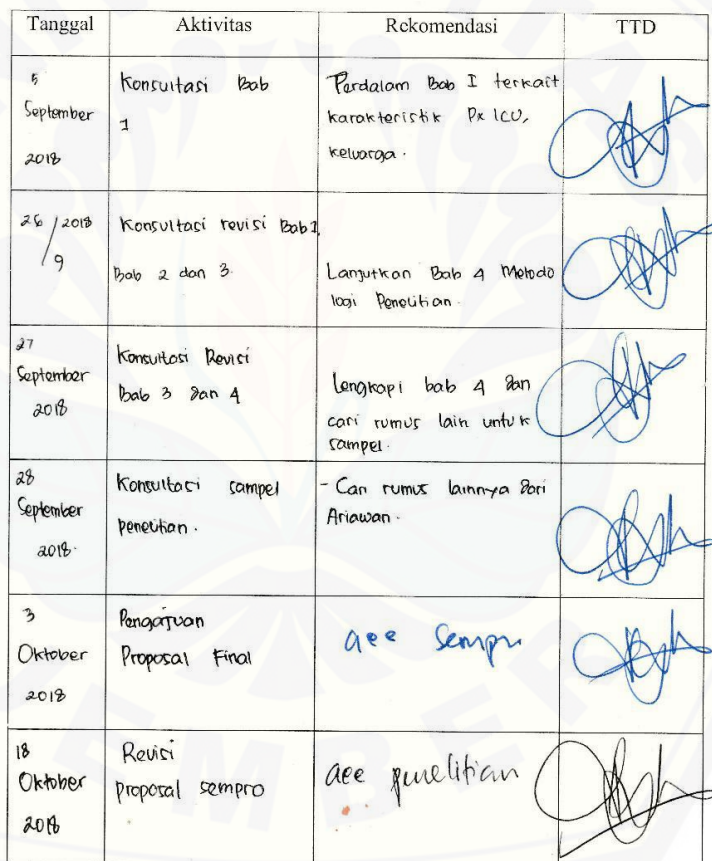 Tanggal Aktivitas Rekomendasi TTD
5
September
2018
Konsultasi Bab
1
Perdalam Bab I terkait
karakteristik Px ICU,
keluarga.
26/2018
9
Konsultasi revisi Bab 1,
Bab 2 dan 3.
Lanjutkan Bab 4 Metodo
logi Penelitian.
27
September
2018
Konsultasi Revisi
Bab 3 dan 4
Lengkapi bab 4 dan
cari rumus lain untuk
sampel.
28
September
2018.
Konsultasi sampel
penelitian.
- Cari rumus lainnya dari
Ariawan.
3
Oktober
2018
Pengajuan
Proposal Final
acc Sempro
18
Oktober
2018
Revisi
proposal sempro
acc penelitian
JEMBER